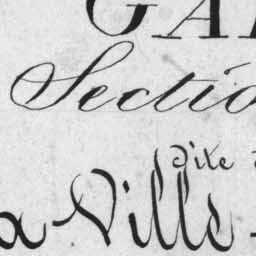 GA
Sectio
dite
a Ville